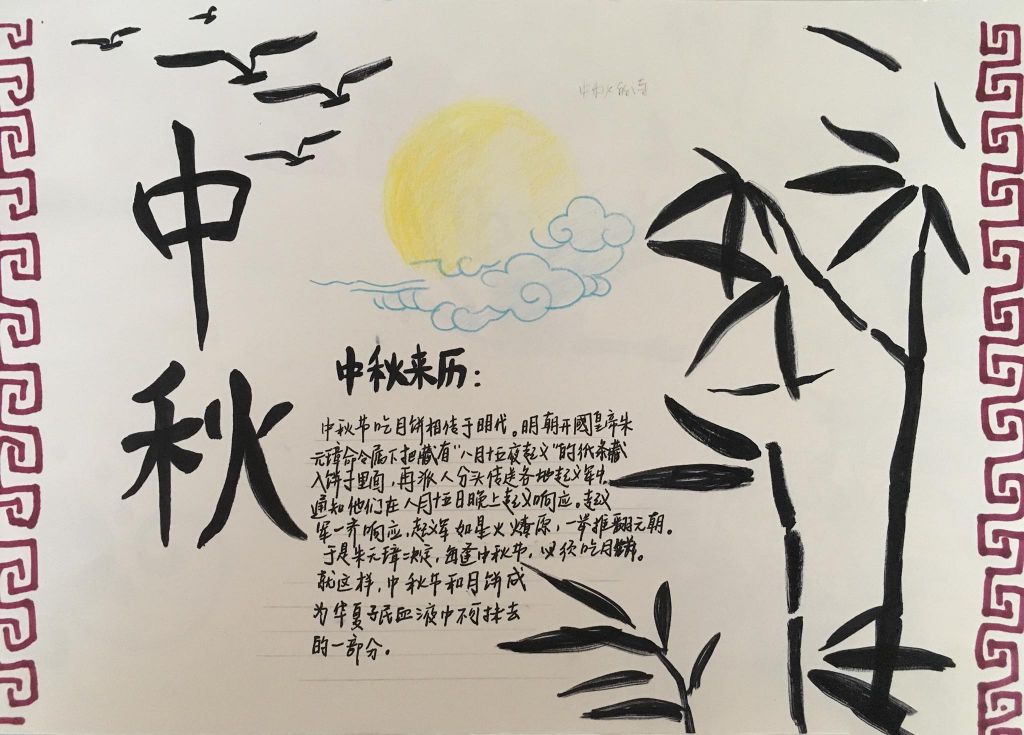 中
秋
中秋来历：
中秋节吃月饼相传于明代。明朝开國皇帝朱
元璋命令属下把藏有“八月十五夜起义”的纸条藏
入饼子里面，再派人分头传送各地起义军中，
通知他们在八月十五日晚上起义响应。起义
军一齐响应，起义军如星火燎原，一举推翻元朝。
于是朱元璋决定，每逢中秋节，必须吃月饼。
就这样，中秋节和月饼成
为华夏子民血液中不可抹去
的一部分。